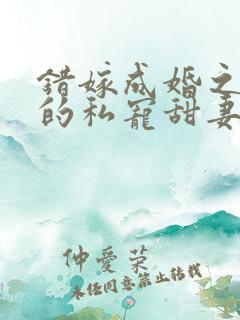 錯嫁成婚之
的私寵甜妻
仲愛荣
未任同意禁止转载